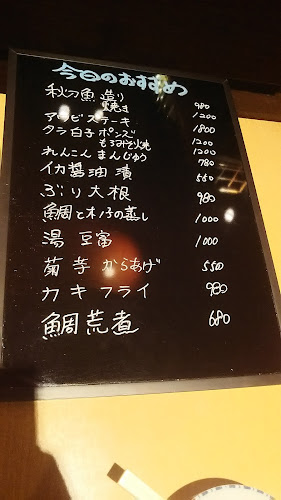 今日のおすすめ
秋刀魚 造り 980
焼き 1200
アワビステーキ 1800
タラ白子 ポンズ 1200
もろみそ焼 1200
れんこん まんじゅう 780
イカ醤油漬 550
ぶり大根 980
鯛と木ノ子の蒸し 1000
湯豆富 1000
菊芋からあげ 550
カキフライ 980
鯛荒煮 680